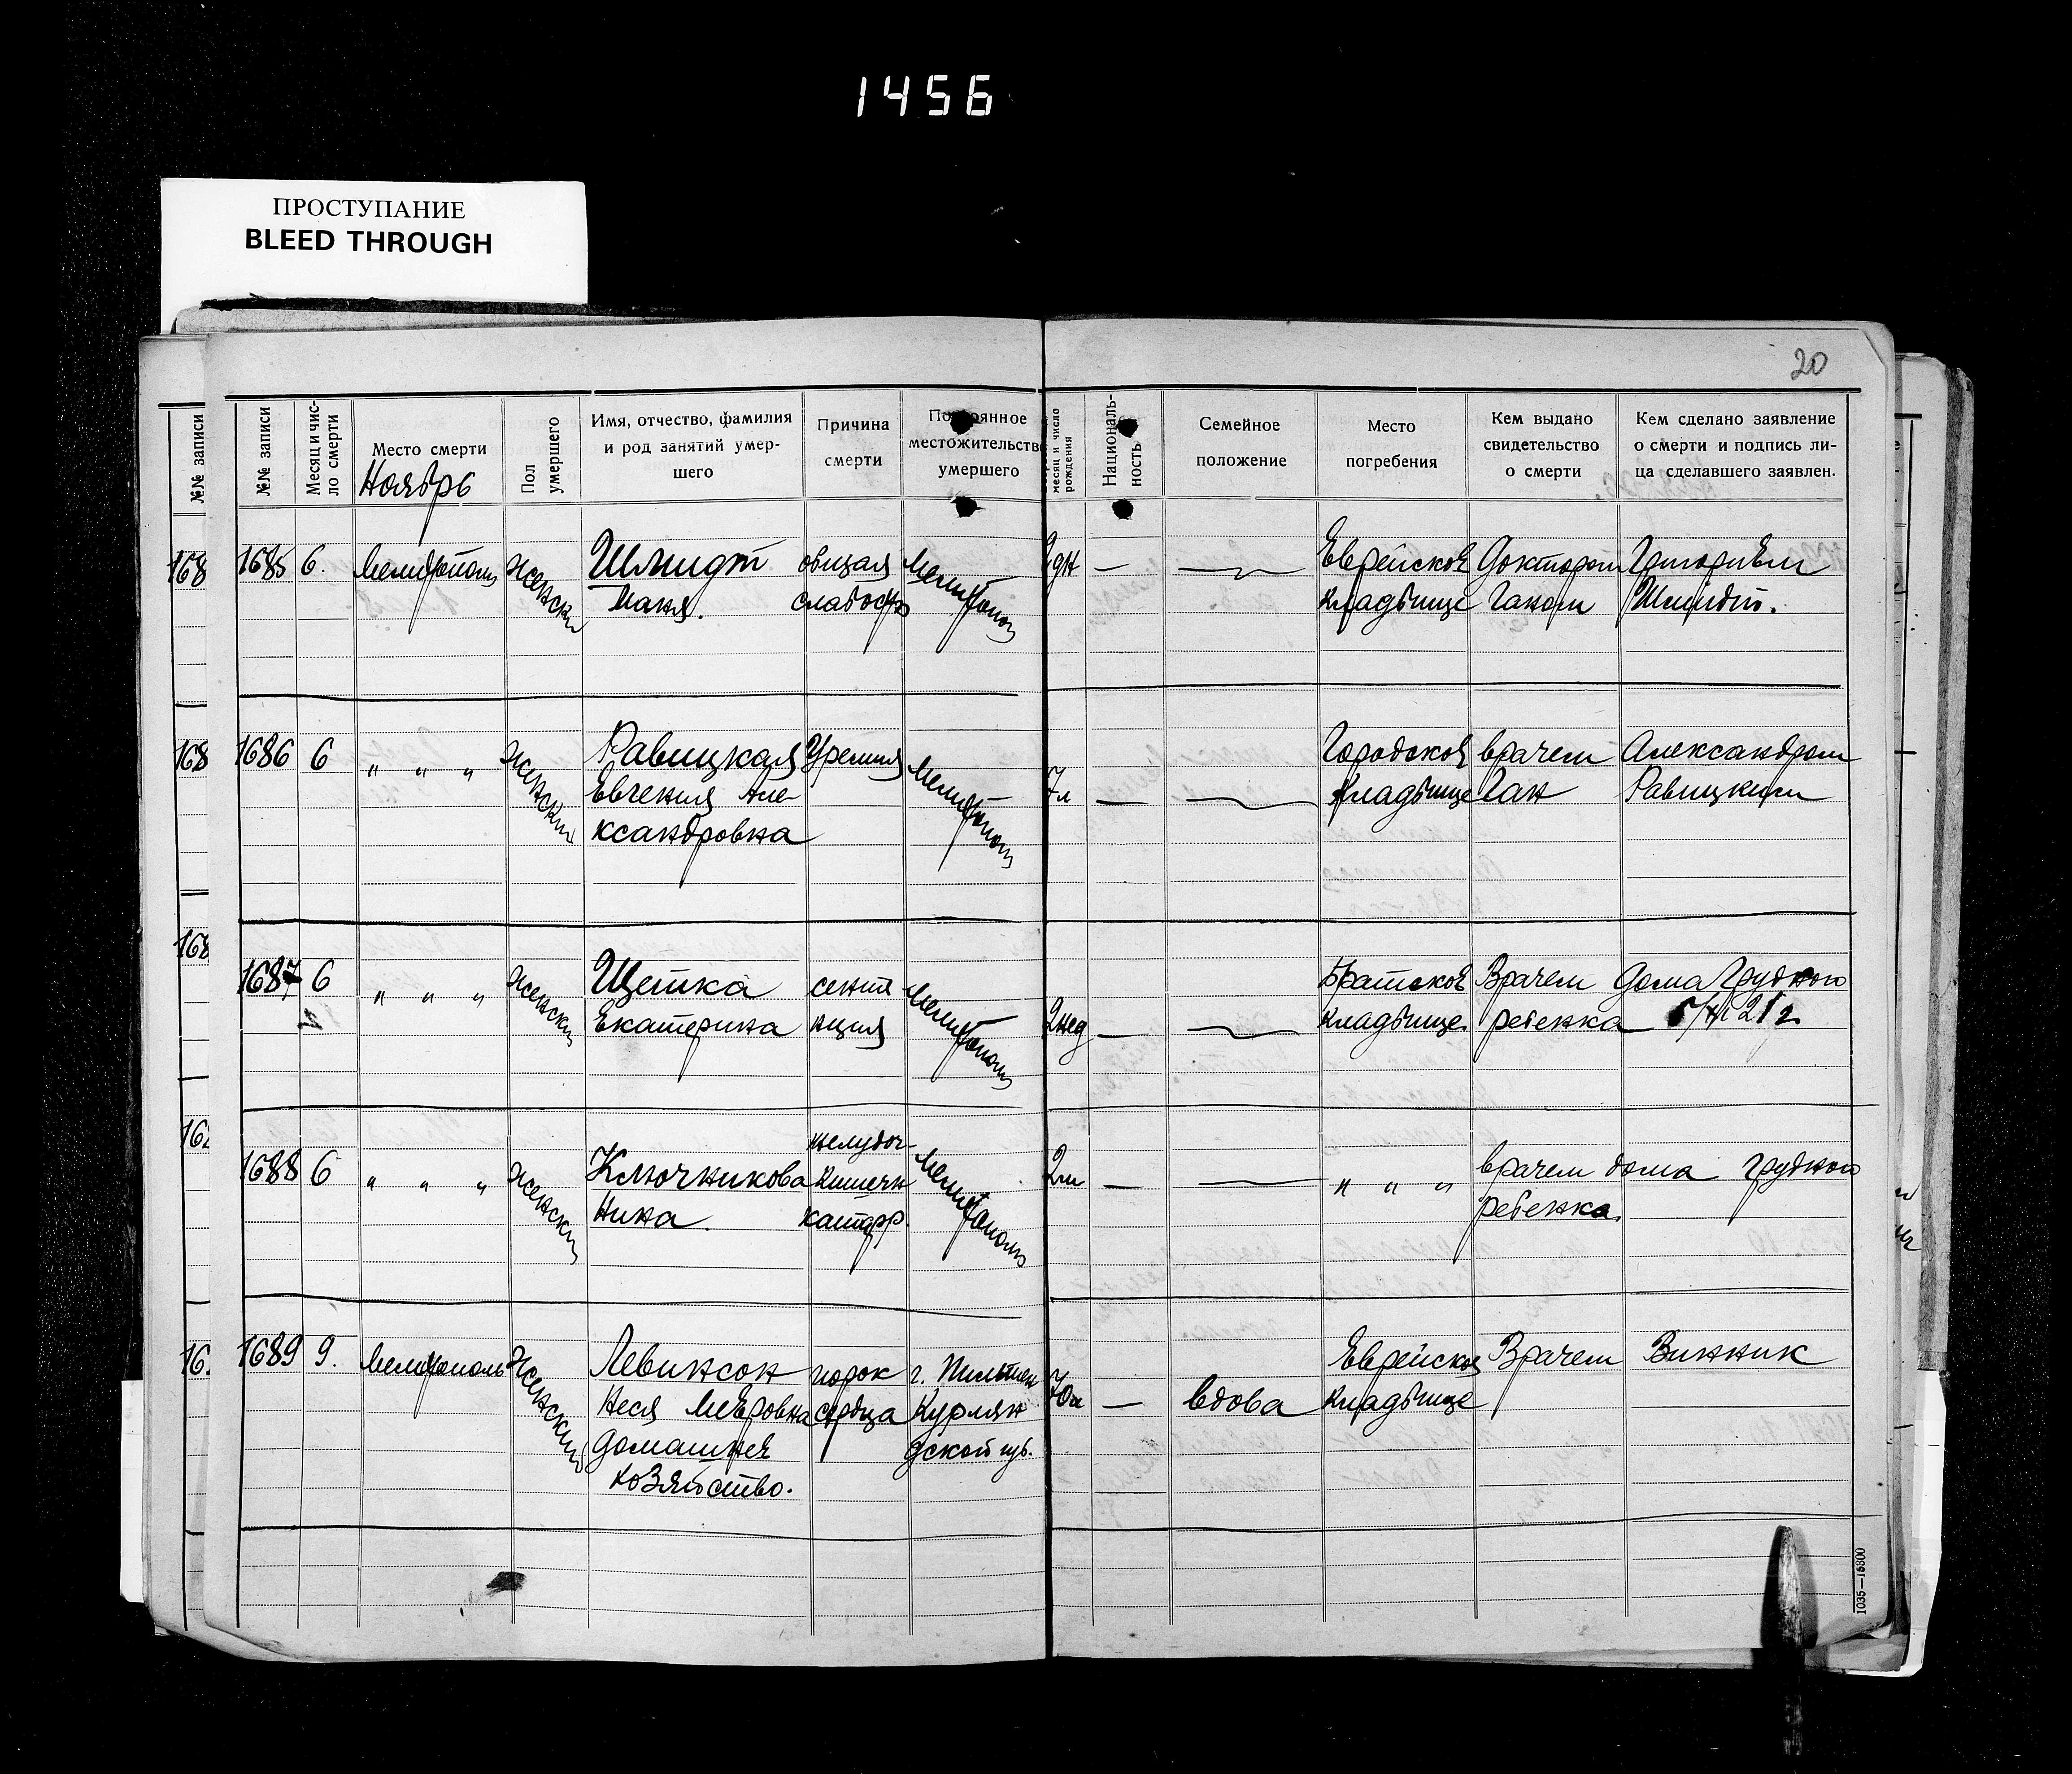 1456
ПРОСТУПАНИЕ
BLEED THROUGH
20
№№ записи
№№ записи
Месяц и чис-
ло смерти
Место смерти
Ноябрь
Пол
умершего
Имя, отчество, фамилия
и род занятий умер-
шего
Причина
смерти
местожительство
умершего
месяц и число
рождения
Националь-
ность
Семейное
положение
Место
погребения
Кем выдано
свидетельство
о смерти
Кем сделано заявление
о смерти и подпись ли-
ца сделавшего заявлен.
168 1685 6. Мелитополь женский Шмидт общая Мелитополь дн — Еврейское Доктором Григорием
Маня. слабость кладбище Ганом Шмидт.
168 1686 6 " " " женский Равицкая Уремия Мелитополь Городское врачем Александром
Евгения Але- 7л — кладбище Ган Равицким
ксандровна
168 1687 6 " " " женский Щетка Мелитополь Братское Врачем Дома Грудного
Екатерина 2нед — кладбище ребенка
1688 6 " " " женский Ключникова желудоч- Мелитополь 2м — " " " врачем дома грудного
кишечн
Нина катарр. ребенка.
1689 9. Мелитополь женский Левинсон порок г. Пильтен 70л — вдова Еврейское Врачем Винник
Неся Меэровна сердца Курлян кладбище
домашнее дской губ.
хозяйство.
1035—15300